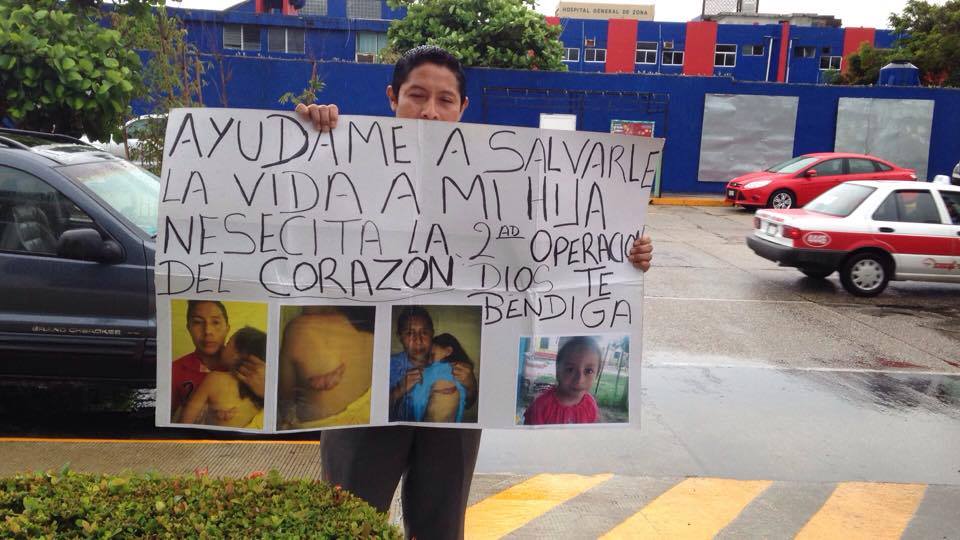 HOSPITAL GENERAL DE ZONA
AYUDAME A SALVARLE
LA VIDA A MI HIJA
NESECITA LA 2AD OPERACION
DEL CORAZON DIOS TE
BENDIGA
GRAND CHEROKEE